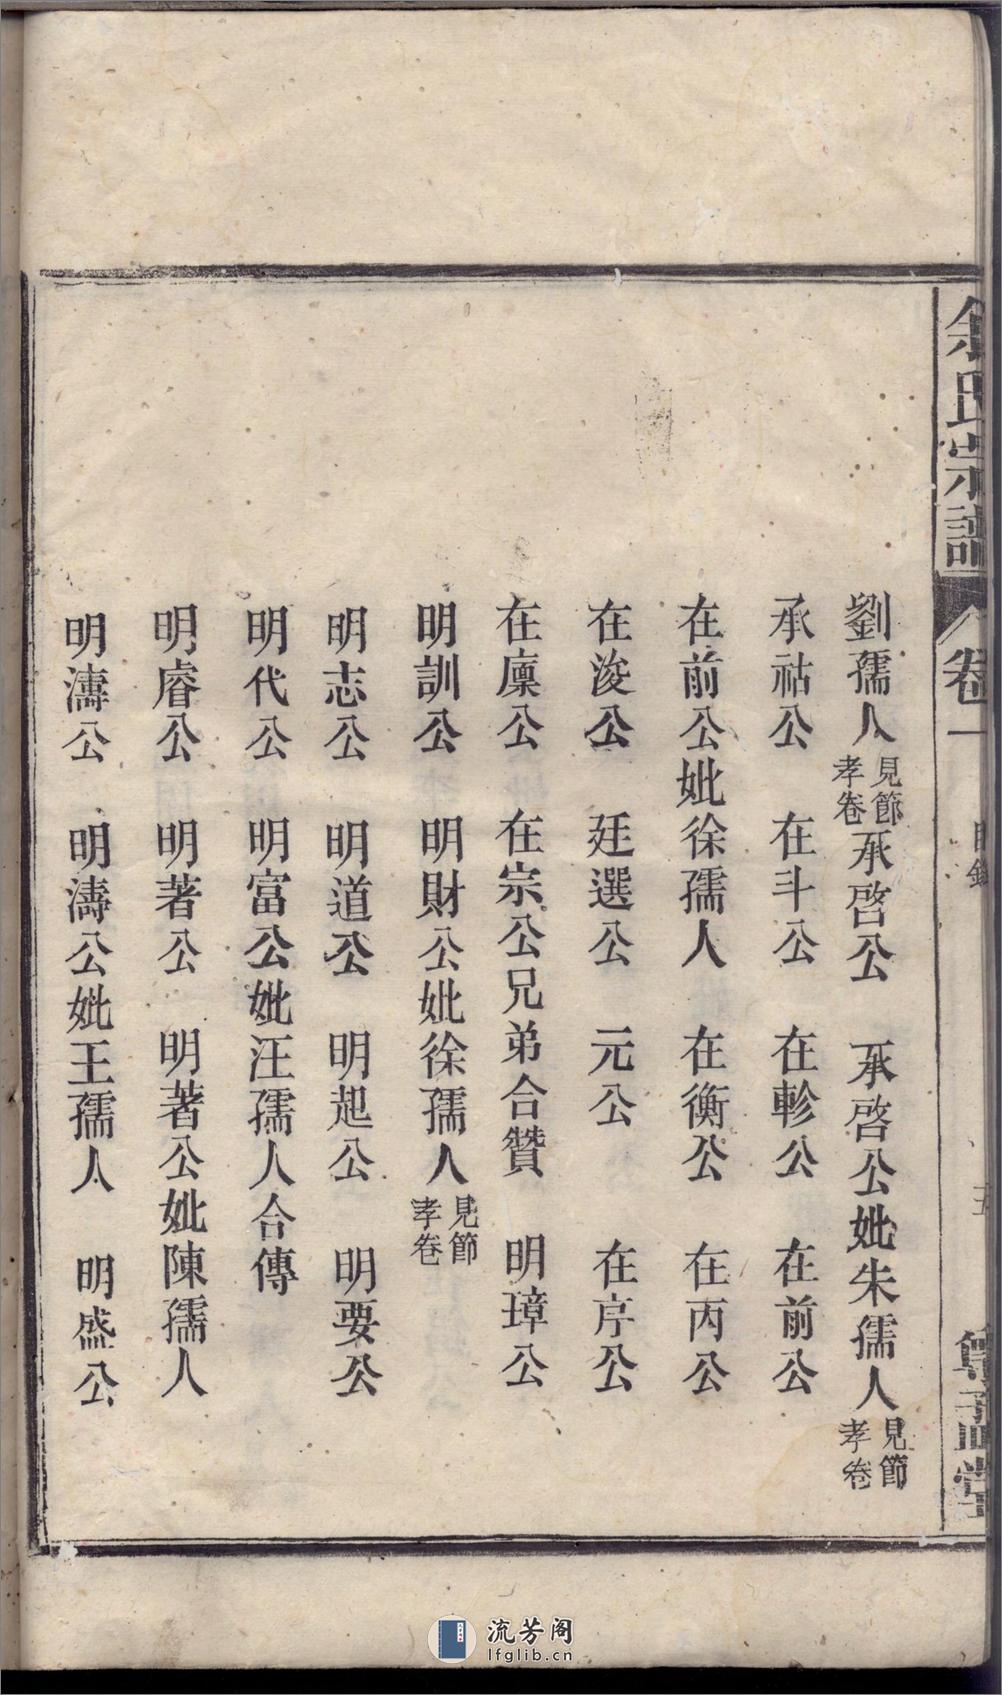 余氏宗譜 卷一 目錄 五
劉孺人見節孝卷 承啓公 承啓公妣朱孺人見節孝卷
承祜公 在斗公 在軫公 在前公
在前公妣徐孺人 在衡公 在丙公
在浚公 廷選公 元公 在庠公
在廩公 在宗公兄弟合贊 明璋公
明訓公 明財公妣徐孺人見節孝卷
明志公 明道公 明起公 明要公
明代公 明富公妣汪孺人合傳
明睿公 明著公 明著公妣陳孺人
明濤公 明濤公妣王孺人 明盛公
流芳阁
lfglib.cn